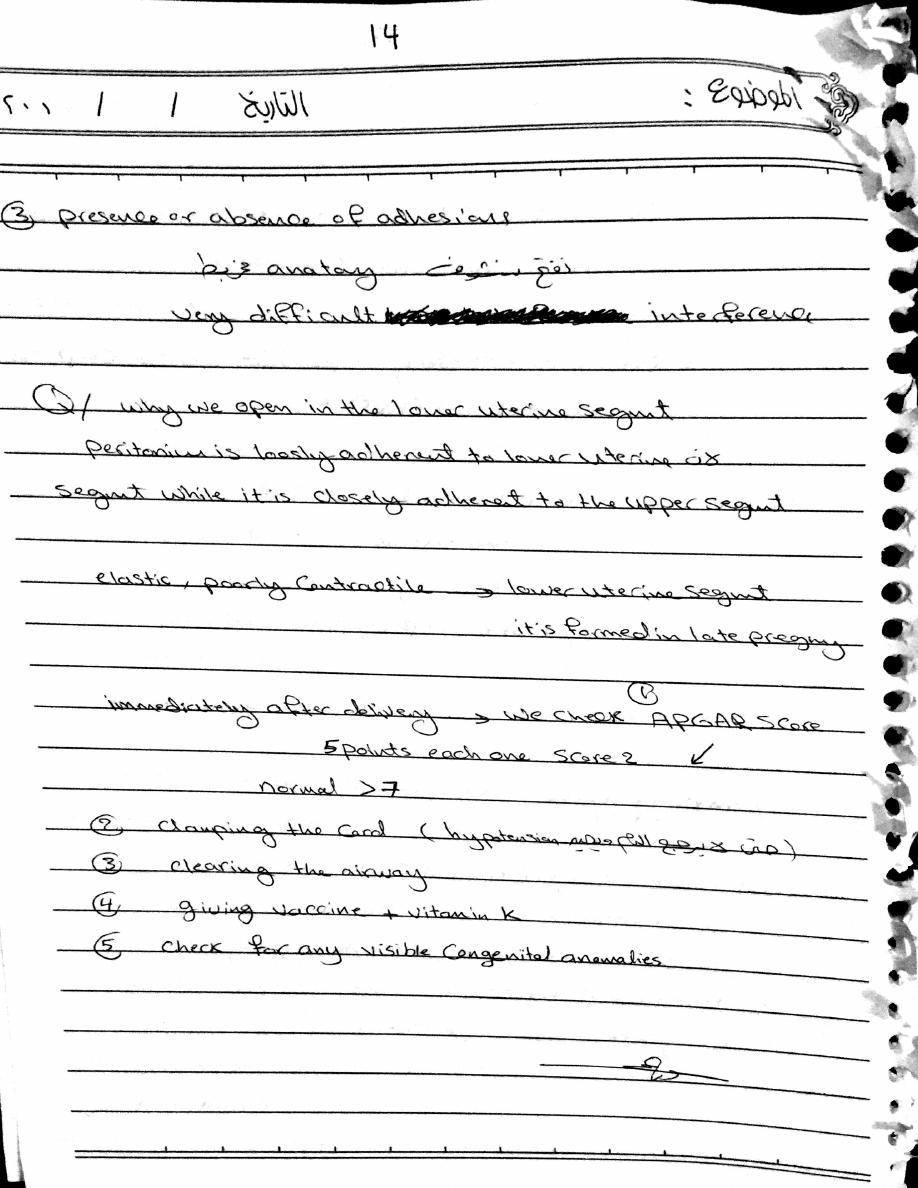 14
الموضوع :
التاريخ / / ٢٠٠١
③ presence or absence of adhesions
anatomy
very difficult interference
Q/ why we open in the lower uterine segmt
peritonium is loosly adherent to lower uterine
segmt while it is closely adherent to the upper segmt
elastic, poorly Contractile → lower uterine segmt
it is formed in late pregny
immediately after delivery → we check ① APGAR Score
5 points each one score 2 ↙
normal >7
② clamping the Cord ( hypotension )
③ clearing the airway
④ giving vaccine + vitamin K
⑤ check for any visible Congenital anomalies